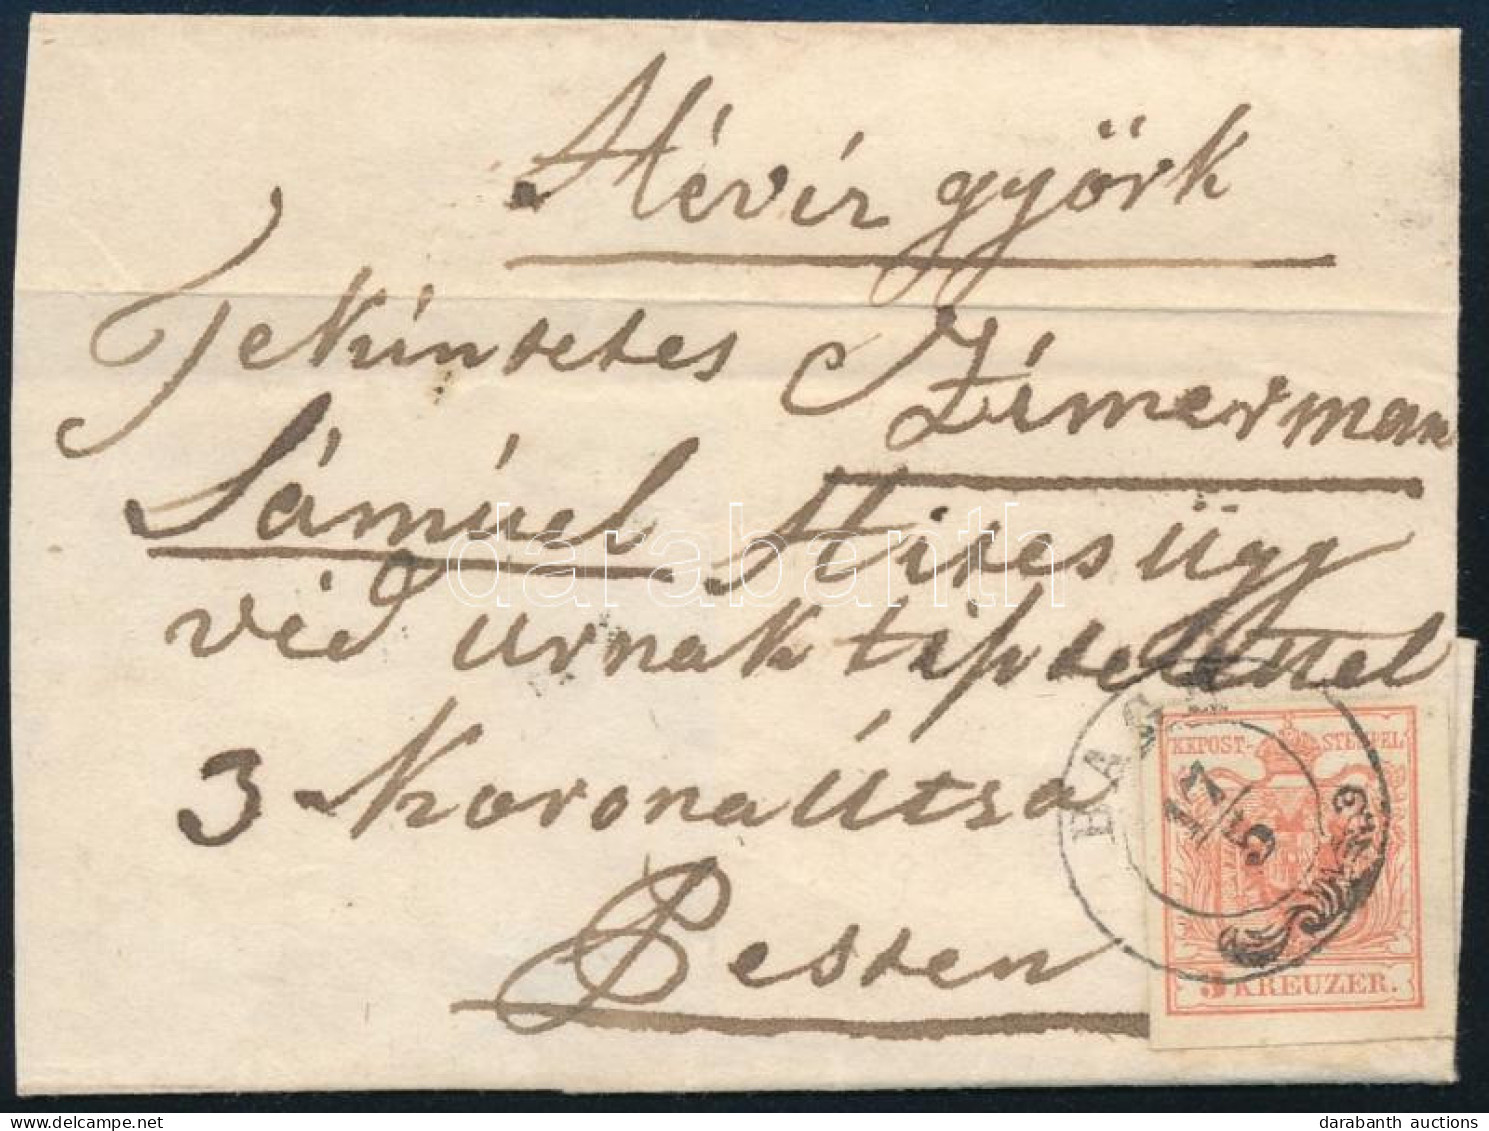 Hévíz györk
Tekúntetes Zímerman
Sámúel Hites ügy
véd urnak tiptelettel
3 Korona Útsa
Pesten
BAG
17/5
KKPOST-STEMPEL
3 KREUZER.
darabanth
darabanth auctions